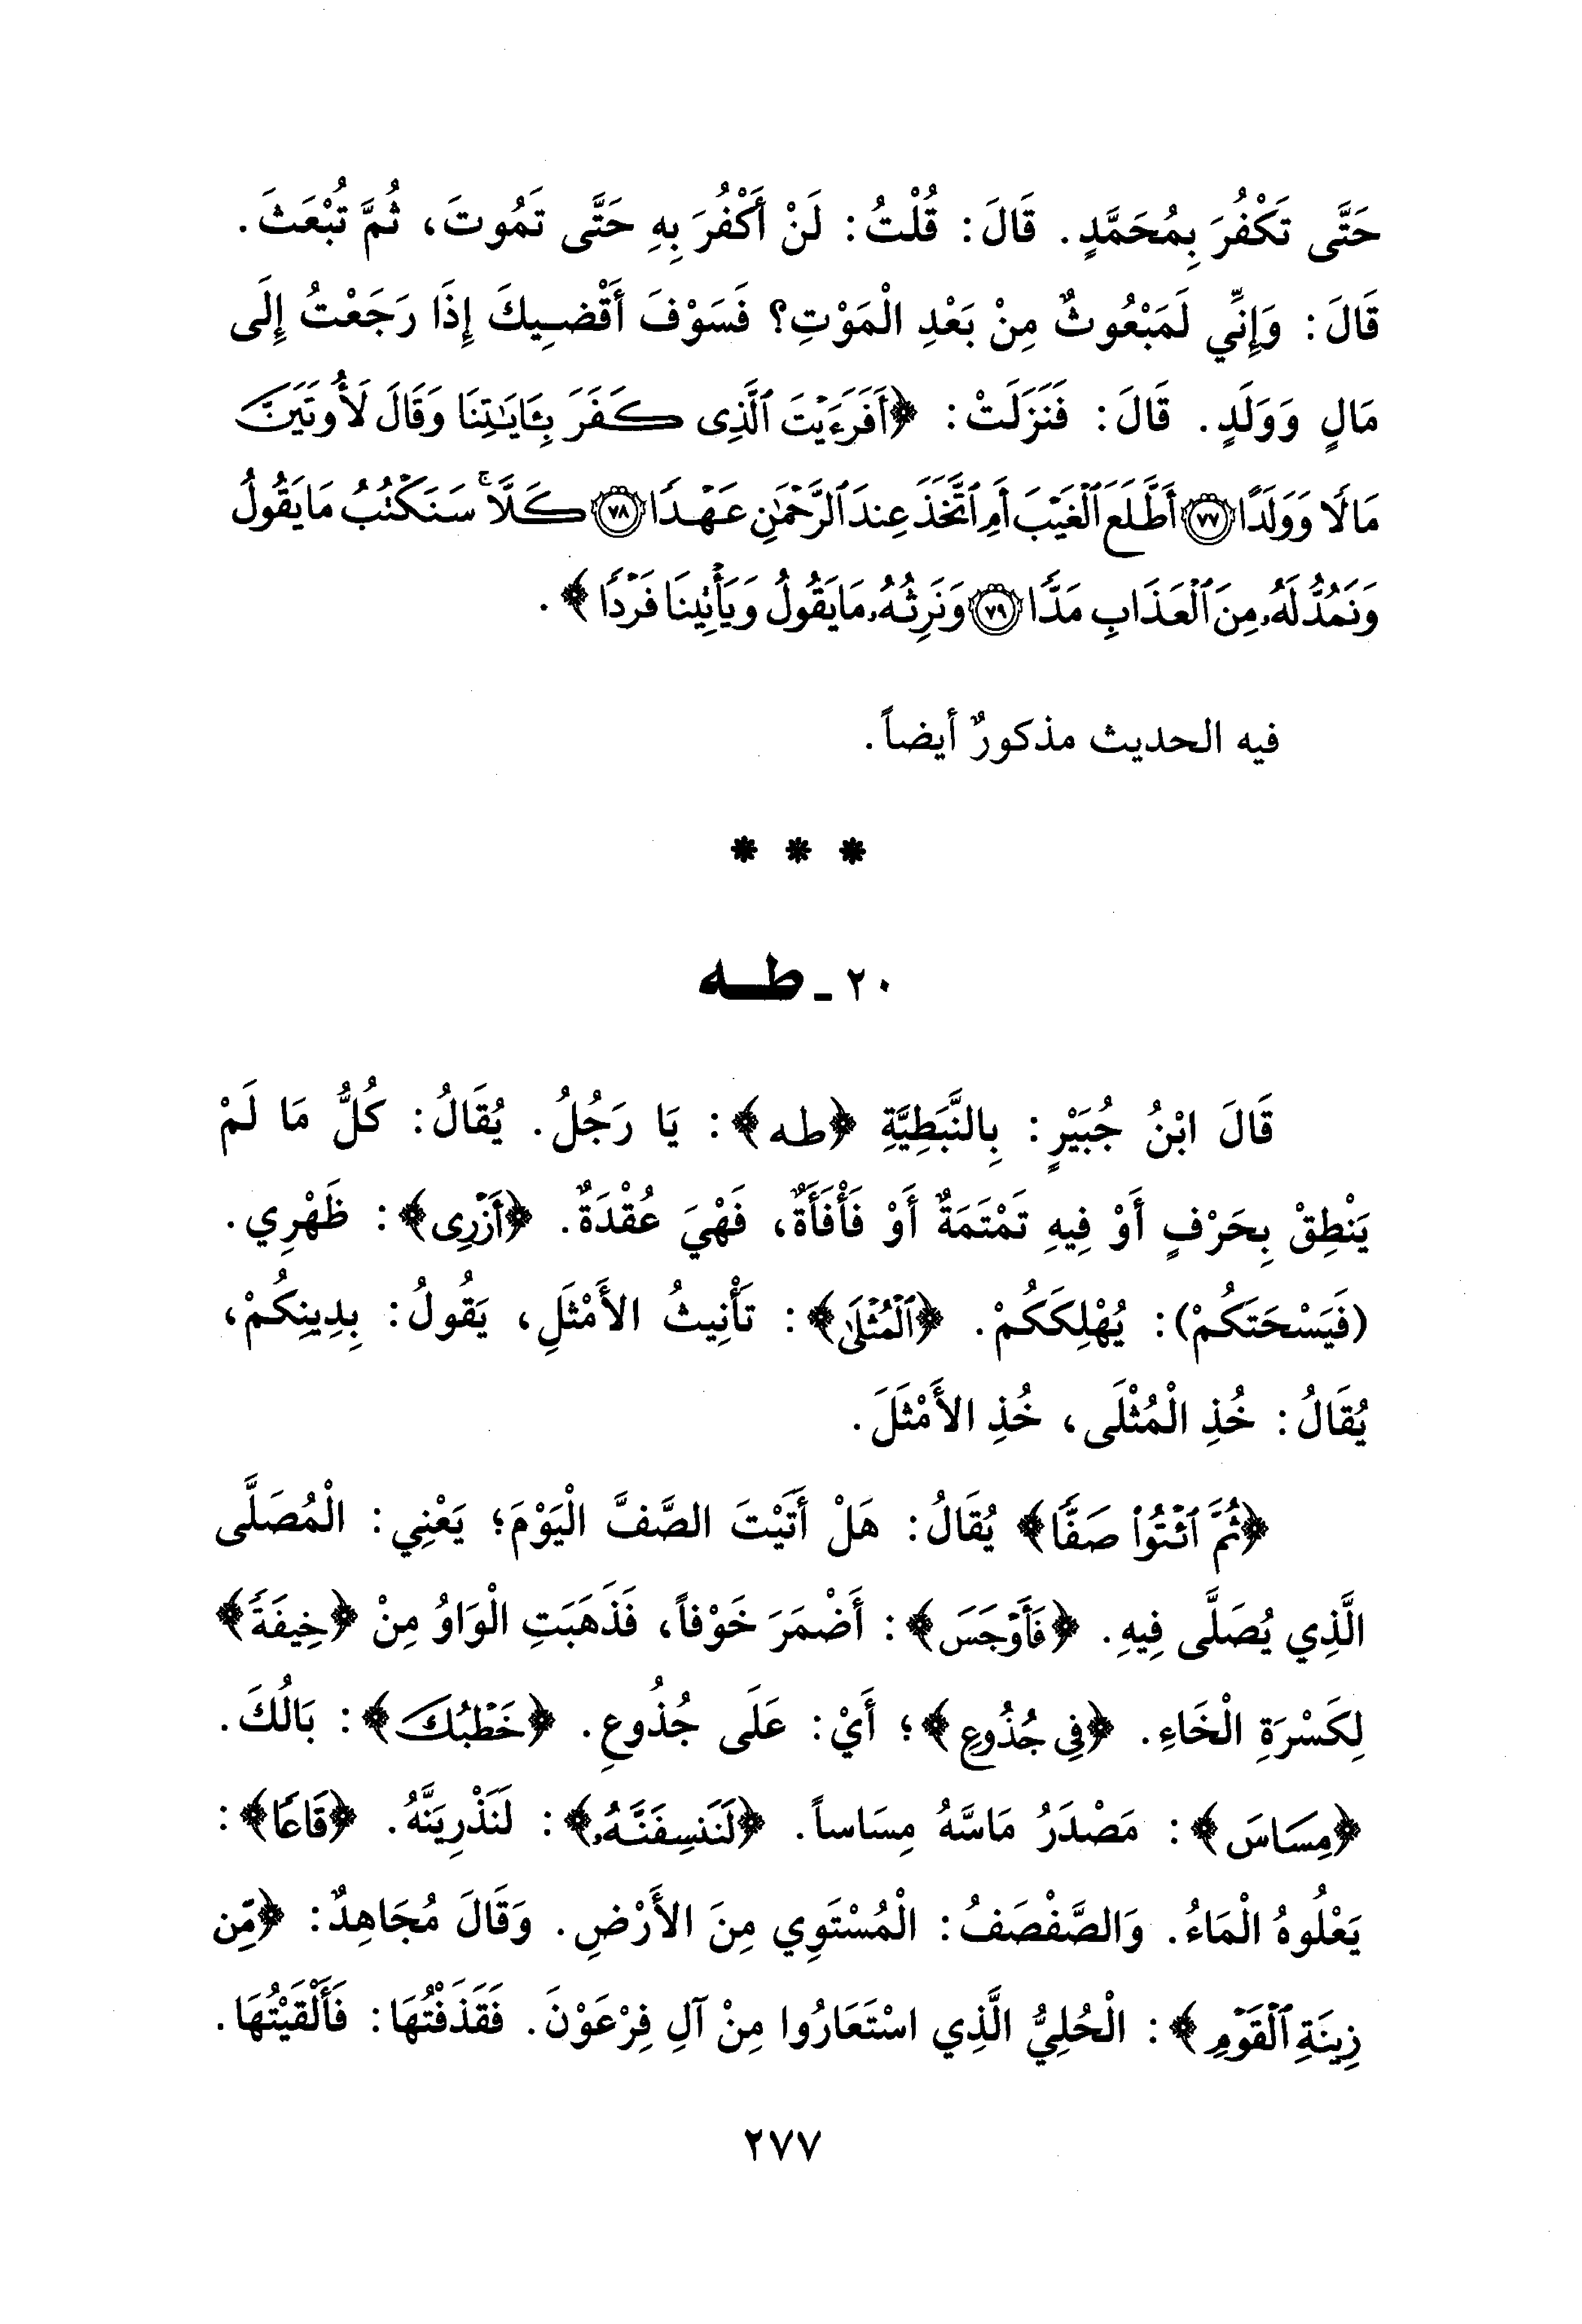 حَتَّى تَكْفُرَ بِمُحَمَّدٍ. قَالَ: قُلْتُ: لَنْ أَكْفُرَ بِهِ حَتَّى تَمُوتَ، ثُمَّ تُبْعَثَ.
قَالَ: وَإِنِّي لَمَبْعُوثٌ مِنْ بَعْدِ الْمَوْتِ؟ فَسَوْفَ أَقْضِيكَ إِذَا رَجَعْتُ إِلَى
مَالٍ وَوَلَدٍ. قَالَ: فَنَزَلَتْ: ﴿أَفَرَءَيْتَ ٱلَّذِى كَفَرَ بِـَٔايَـٰتِنَا وَقَالَ لَأُوتَيَنَّ
مَالًا وَوَلَدًا ٧٧ أَطَّلَعَ ٱلْغَيْبَ أَمِ ٱتَّخَذَ عِندَ ٱلرَّحْمَـٰنِ عَهْدًا ٧٨ كَلَّا ۚ سَنَكْتُبُ مَا يَقُولُ
وَنَمُدُّ لَهُۥ مِنَ ٱلْعَذَابِ مَدًّا ٧٩ وَنَرِثُهُۥ مَا يَقُولُ وَيَأْتِينَا فَرْدًا﴾.
فيه الحديث مذكورٌ أيضاً.
* * *
٢٠ ـ طـه
قَالَ ابْنُ جُبَيْرٍ: بِالنَّبَطِيَّةِ ﴿طه﴾: يَا رَجُلُ. يُقَالُ: كُلُّ مَا لَمْ
يَنْطِقْ بِحَرْفٍ أَوْ فِيهِ تَمْتَمَةٌ أَوْ فَأْفَأَةٌ، فَهْيَ عُقْدَةٌ. ﴿أَزْرِى﴾: ظَهْرِي.
(فَيَسْحَتَكُمْ): يُهْلِكَكُمْ. ﴿ٱلْمُثْلَىٰ﴾: تَأْنِيثُ الأَمْثَلِ، يَقُولُ: بِدِينِكُمْ،
يُقَالُ: خُذِ الْمُثْلَى، خُذِ الأَمْثَلَ.
﴿ثُمَّ ٱئْتُوا۟ صَفًّا﴾ يُقَالُ: هَلْ أَتَيْتَ الصَّفَّ الْيَوْمَ؛ يَعْنِي: الْمُصَلَّى
الَّذِي يُصَلَّى فِيهِ. ﴿فَأَوْجَسَ﴾: أَضْمَرَ خَوْفاً، فَذَهَبَتِ الْوَاوُ مِنْ ﴿خِيفَةً﴾
لِكَسْرَةِ الْخَاءِ. ﴿فِى جُذُوعِ﴾؛ أَيْ: عَلَى جُذُوعِ. ﴿خَطْبُكَ﴾: بَالُكَ.
﴿مِسَاسَ﴾: مَصْدَرُ مَاسَّهُ مِسَاساً. ﴿لَنَنسِفَنَّهُۥ﴾: لَنَذْرِيَنَّهُ. ﴿قَاعًا﴾:
يَعْلُوهُ الْمَاءُ. وَالصَّفْصَفُ: الْمُسْتَوِي مِنَ الأَرْضِ. وَقَالَ مُجَاهِدٌ: ﴿مِّن
زِينَةِ ٱلْقَوْمِ﴾: الْحُلِيُّ الَّذِي اسْتَعَارُوا مِنْ آلِ فِرْعَوْنَ. فَقَذَفْتُهَا: فَأَلْقَيْتُهَا.
٢٧٧